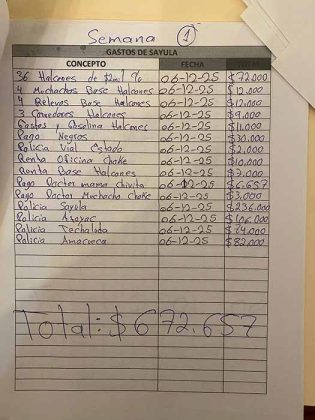 Semana 1
GASTOS DE SAYULA
CONCEPTO FECHA
36 Halcones de $2mil % 06-12-25 $72.000
4 Muchachos Base Halcones 06-12-25 $12.000
4 Relevos Base Halcones 06-12-25 $12.000
3 Comedores Halcones 06-12-25 $9.000
Gastos y Gasolina Halcones 06-12-25 $11.000
Pago Negros 06-12-25 $30.000
Policia Vial Estado 06-12-25 $2.000
Renta Oficina Choke 06-12-25 $10.000
Renta Base Halcones 06-12-25 $3.000
Pago Doctor mama chivita 06-12-25 $6.657
Pago Doctor Muchacho Choke 06-12-25 $3.000
Policia Sayula 06-12-25 $236.000
Policia Atoyac 06-12-25 $106.000
Policia Techaluta 06-12-25
Policia Amacueca 06-12-25 $82.000
Total: $672.657